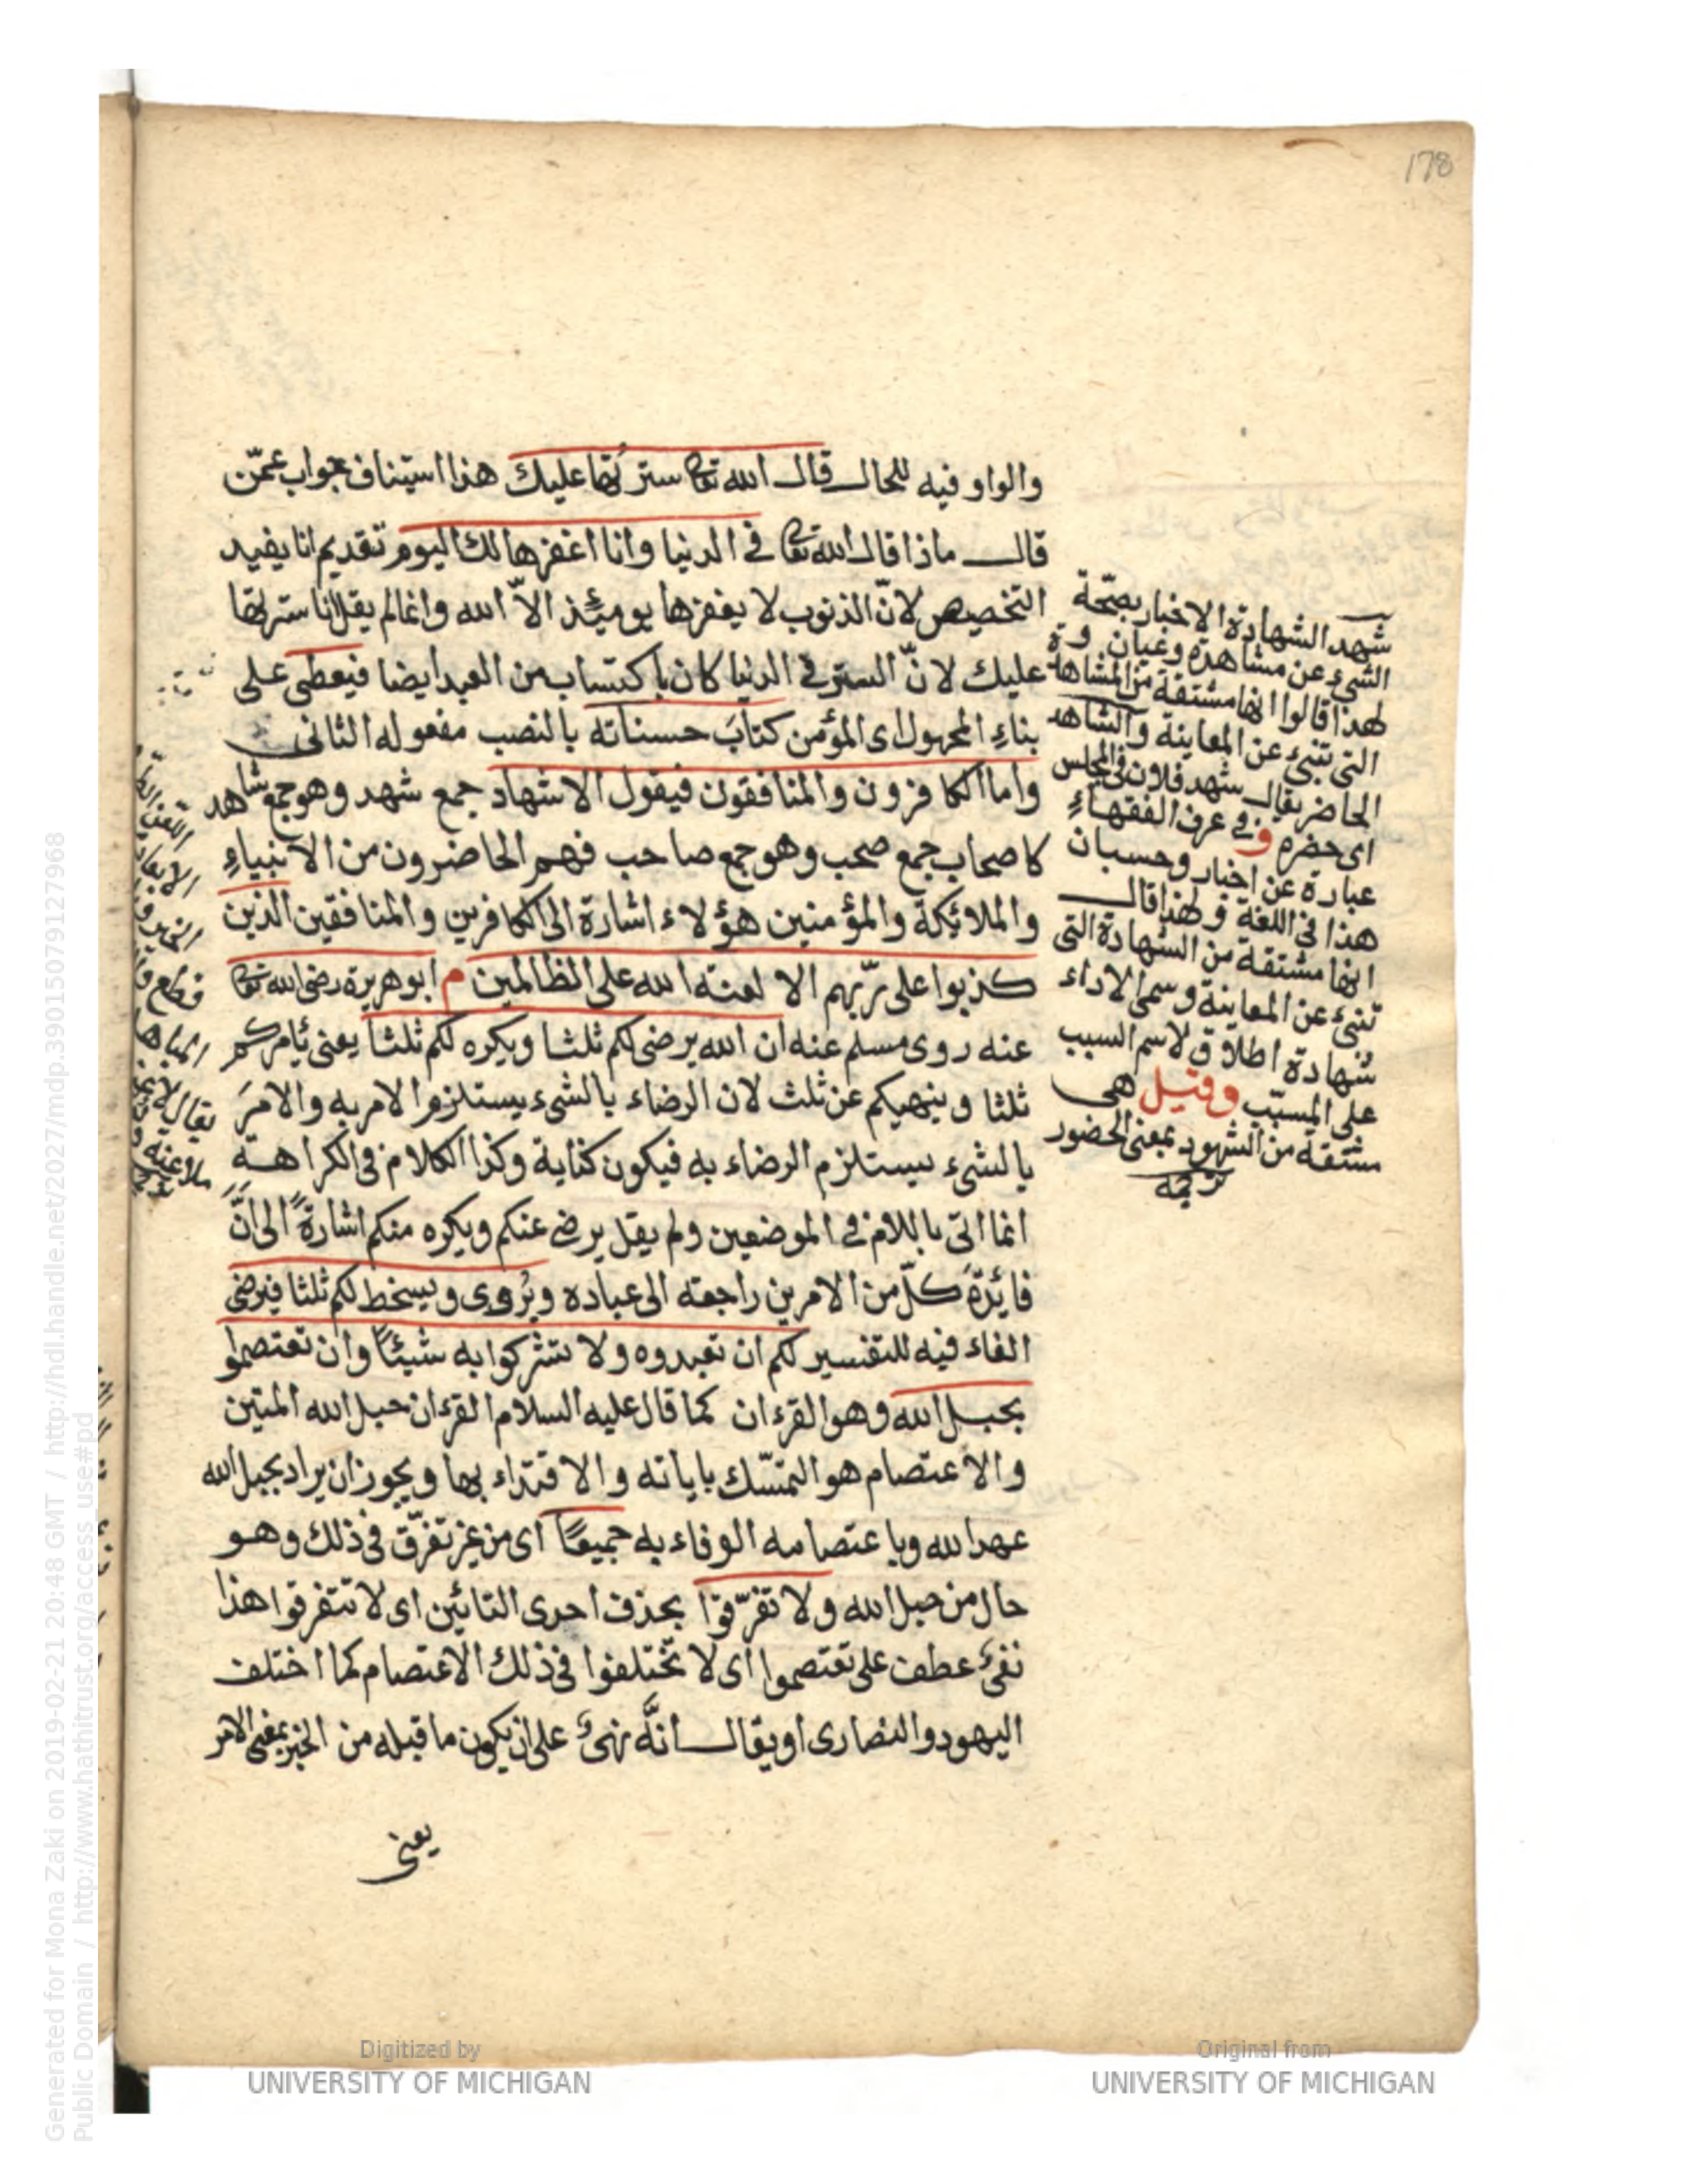 178
والواو فيه للحال قال الله تعالى سترتها عليك هذا استيناف جواب عمّن
قال ماذا قال الله تعالى في الدنيا وانا اغفرها لك اليوم تقديم انا يفيد
التخصيص لانّ الذنوب لا يغفرها يومئذ الاّ الله وانما لم يقل انا سترتها
عليك لانّ الستر في الدنيا كان باكتساب من العبد ايضا فيعطى على
بناء المجهول اى المؤمن كتابَ حسناته بالنصب مفعوله الثانى
واما الكافرون والمنافقون فيقول الاشهاد جمع شهد وهو جمع شاهد
كاصحاب جمع صحب وهو جمع صاحب فهم الحاضرون من الانبياء
والملائكة والمؤمنين هؤلاء اشارة الى الكافرين والمنافقين الذين
كذبوا على ربّهم الا لعنة الله على الظالمين م ابو هريرة رضى الله تعالى
عنه روى مسلم عنه ان الله يرضى لكم ثلثا ويكره لكم ثلثا يعنى يأمركم
ثلثا وينهيكم عن ثلث لان الرضاء بالشىء يستلزم الامر به والامرَ
بالشىء يستلزم الرضاء به فيكون كناية وكذا الكلام فى الكراهة
انما اتى باللام في الموضعين ولم يقل يرضى عنكم ويكره منكم اشارةً الى انَّ
فائدةَ كلّ من الامرين راجعة الى عباده ويُروى ويسخط لكم ثلثا فيرضى
الفاء فيه للتفسير لكم ان تعبدوه ولا تشركوا به شيئًا وان تعتصموا
بحبل الله وهو القرءان كما قال عليه السلام القرءان حبل الله المتين
والاعتصام هو التمسّك باياته والاقتداء بها ويجوز ان يراد بحبل الله
عهد الله وباعتصامه الوفاء به جميعًا اى من غير تفرّق فى ذلك وهو
حال من حبل الله ولا تفرّقوا بحذف احدى التائين اى لا تتفرقوا هذا
نفىٌ عطف على تعتصموا اى لا تختلفوا فى ذلك الاعتصام كما اختلف
اليهود والنصارى او يقال انَّه نهىٌ على ان يكون ما قبله من الخبر بمعنى الامر
يعنى
شهد الشهادة الاخبار بصحّة
الشىء عن مشاهدة وعيان
لهذا قالوا انها مشتقة من المشاهدة
التى تنبىء عن المعاينة والشاهد
الحاضر يقال شهد فلان فى المجلس
اى حضره وفى عرف الفقهاء
عبارة عن اخبار وحسبان
هذا فى اللغة ولهذا قال
انها مشتقة من الشهادة التى
تنبىء عن المعاينة وسمى الاداء
شهادة اطلاق لاسم السبب
على المسبّب وقيل هى
مشتقة من الشهود بمعنى الحضور
Generated for Mona Zaki on 2019-02-21 20:48 GMT / http://hdl.handle.net/2027/mdp.39015079127968
Public Domain / http://www.hathitrust.org/access_use#pd
Digitized by
UNIVERSITY OF MICHIGAN
Original from
UNIVERSITY OF MICHIGAN